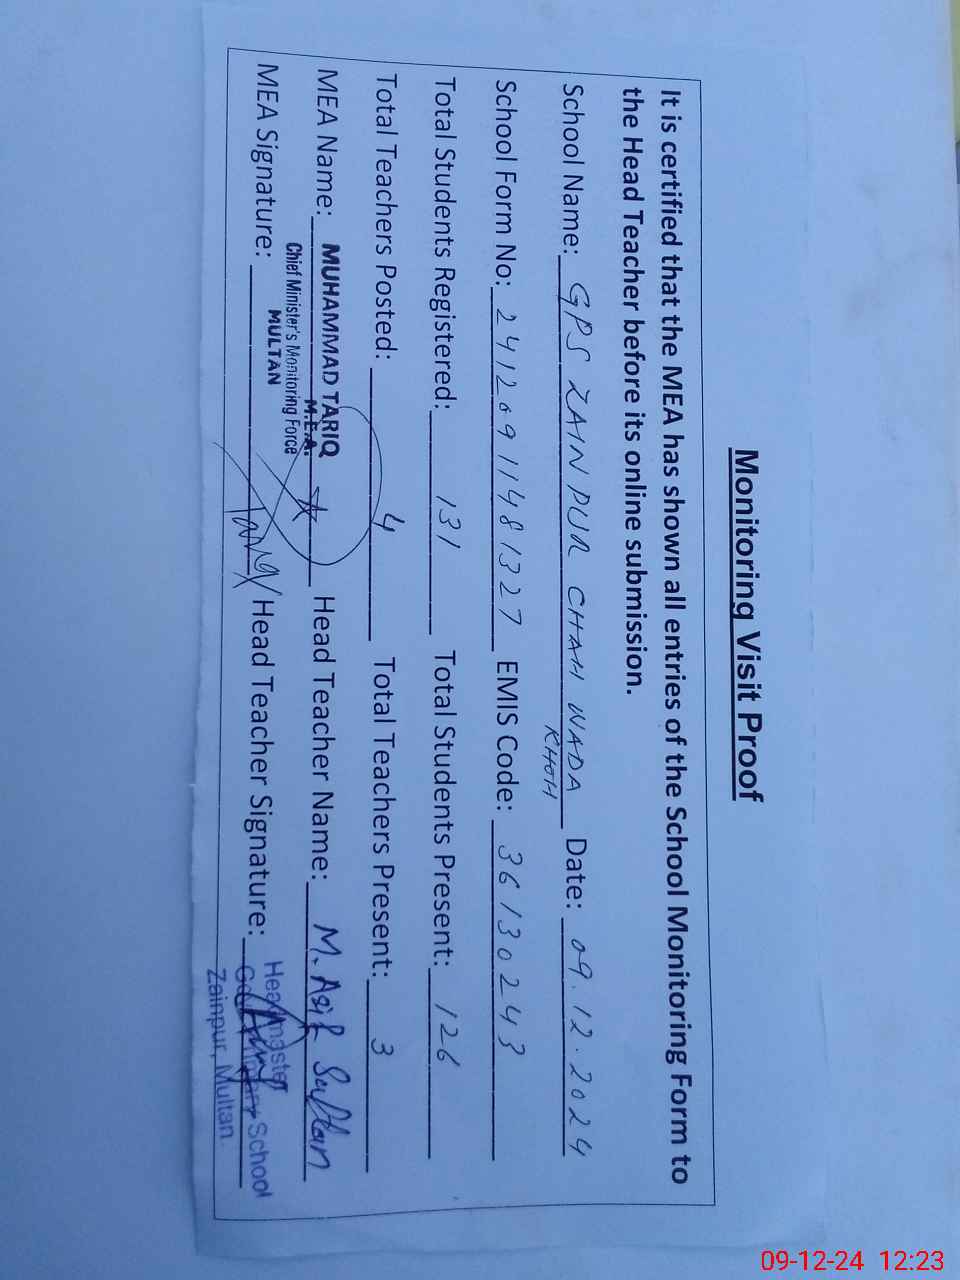 Monitoring Visit Proof
It is certified that the MEA has shown all entries of the School Monitoring Form to
the Head Teacher before its online submission.
School Name: GPS ZAINPUR CHAH WADA Date: 09.12.2024
KHOH
School Form No: 24120911481327 EMIS Code: 36130243
Total Students Registered: 131 Total Students Present: 126
Total Teachers Posted: 4 Total Teachers Present: 3
MEA Name: MUHAMMAD TARIQ Head Teacher Name: M. Asif Sultan
M.E.A.
Chief Minister's Monitoring Force
MULTAN
MEA Signature: Tariq Head Teacher Signature:
Headmaster
Govt. Primary School
Zainpur, Multan
09-12-24 12:23